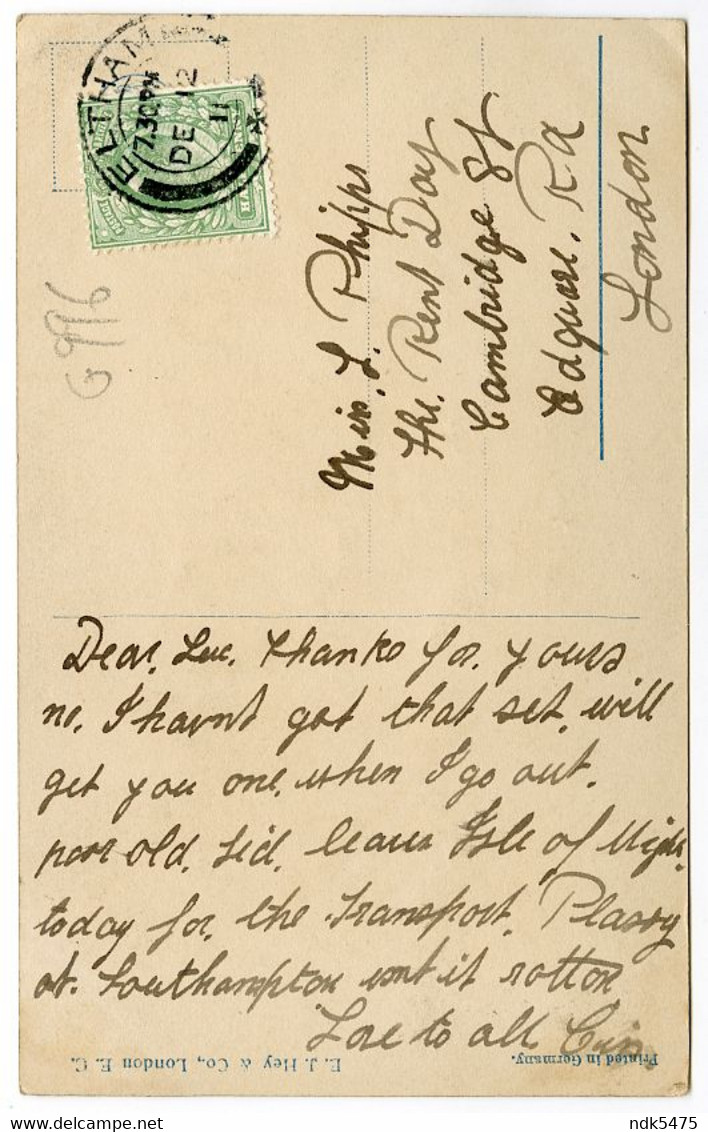 ELTHAM
7.30 PM
DE 12
11
G996
Miss. L. Phipps
The. Rent Day
Cambridge St
Edquare. Rd
London
Dear. Lue. Thanks for. yours
no. I havnt got that set. will
get you one. when I go out.
poor old. Sid. leaves Isle of Wight.
today for. the Transport. Plassy
at. Southampton isnt it rotton
Love to all
E. J. Hey & Co., London E. C.
Printed in Germany.
ndk5475